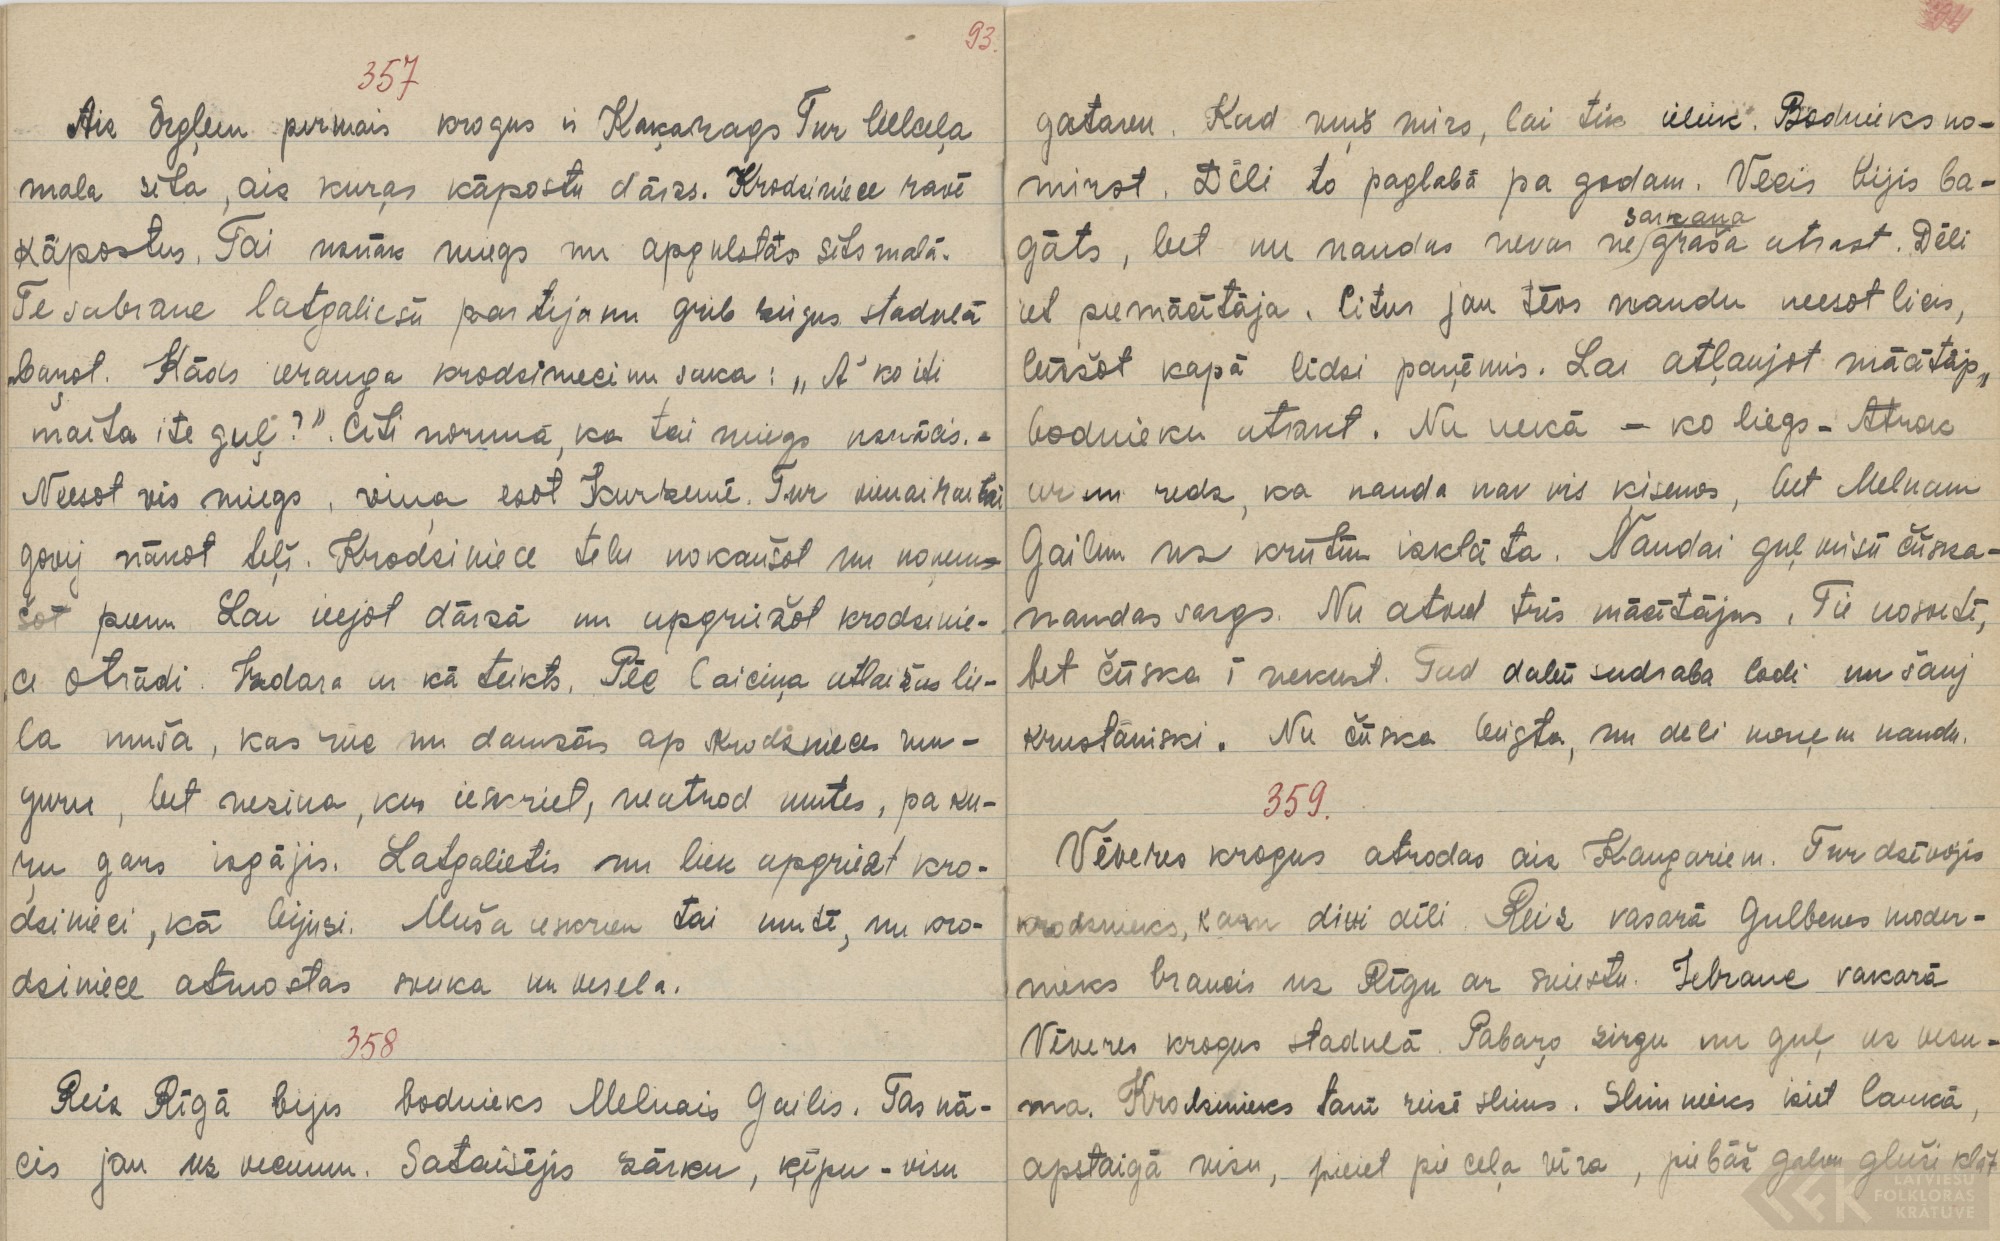 93.
357
Aiz Ergļem pirmais krogus ir Kaķarags Tur lielceļa
mala sēta, aiz kuŗas kāpostu dārzs. Krodziniece ravē
kāpostus. Tai uznāk miegs un apgulstās sēts malā.
Te sabrauc latgaliešu partija un grib zirgus stadulā
baŗot. Kāds ierauga krodzinieci un saka: „A ko iti
maita ite guļ?". Citi norunā, ka tai miegs uznācis. -
Neesot vis miegs, viņa esot Kurzemē. Tur vienai
govij nākot teļš. Krodziniece telu nokaušot un noņem-
šot pienu Lai ieejot dārzā un apgriežot krodzinie-
ci otrādi. Izdara ar kā teikts. Pēc laiciņa atlaižas lie-
la muša, kas rūc un danzās ap krodznieces mu-
guru, bet nezina, kur ieskriet, neatrod mutes, pa ku-
ŗu gars izgājis. Latgalietis nu liek apgriezt kro-
dzinieci, kā bijusi. Muša ieskrien tai mutē, un kro-
dziniece atmostas sveika un vesela.
358
Reiz Rīgā bijis bodnieks Melnais Gailis. Tas nā-
cis jau uz vecumu. Sataisījis zārku, ķīpu - visu
gatavu. Kad viņš mirs, lai tik ieliek. Bodnieks no-
mirst. Dēli to paglabā pa godam. Vecis bijis ba-
sarkana
gāts, bet nu naudas nevar ne graša atrast. Dēli
iet pie mācītāja. Citur jau tēvs naudu neesot licis,
būšot kapā līdzi paņēmis. Lai atļaujot mācītājs
bodnieku atrakt. Nu nekā - ko liegs - Atrok
ar un redz, ka nauda nav vis ķisenes, bet Melnam
Gailim uz krūtīm izklāta. Naudai guļ virsū čūska -
naudas sargs. Nu atved trīs mācītājus. Tie nosvētī,
bet čūska i nekust. Tad dabū sudraba lodi un šauj
krustāniski. Nu čūska beigta, un dēli noņem naudu.
359.
Vēveres krogus atrodas aiz Kangariem. Tur dzīvojis
krodznieks, kam divi dēli. Reiz vasarā Gulbenes moder-
nieks braucis uz Rīgu ar sviestu. Iebrauc vakarā
Vēveres krogus stadulā. Pabaŗo zirgu un guļ uz vezu-
ma. Krodzinieks tanī reizē slims. Slimnieks iziet laukā,
apstaigā visu, pieiet pie ceļa vīra, piebāž galvu gluži klāt
LATVIEŠU
FOLKLORAS
KRĀTUVE